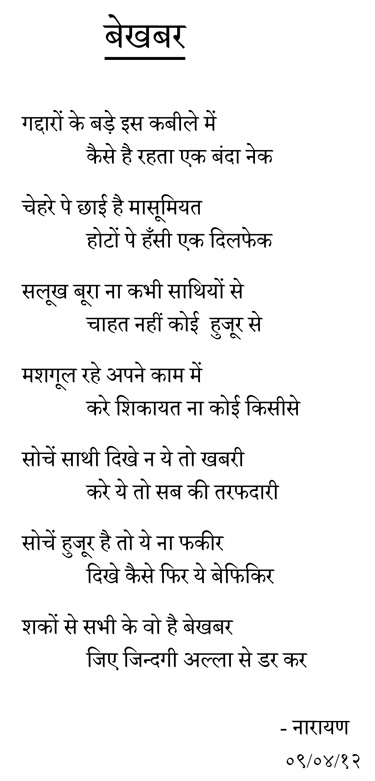 बेखबर
गद्दारों के बड़े इस कबीले में
कैसे है रहता एक बंदा नेक
चेहरे पे छाई है मासूमियत
होटों पे हँसी एक दिलफेक
सलूख बूरा ना कभी साथियों से
चाहत नहीं कोई हुजूर से
मशगूल रहे अपने काम में
करे शिकायत ना कोई किसीसे
सोचें साथी दिखे न ये तो खबरी
करे ये तो सब की तरफदारी
सोचें हुजूर है तो ये ना फकीर
दिखे कैसे फिर ये बेफिकिर
शकों से सभी के वो है बेखबर
जिए जिन्दगी अल्ला से डर कर
- नारायण
०९/०४/१२